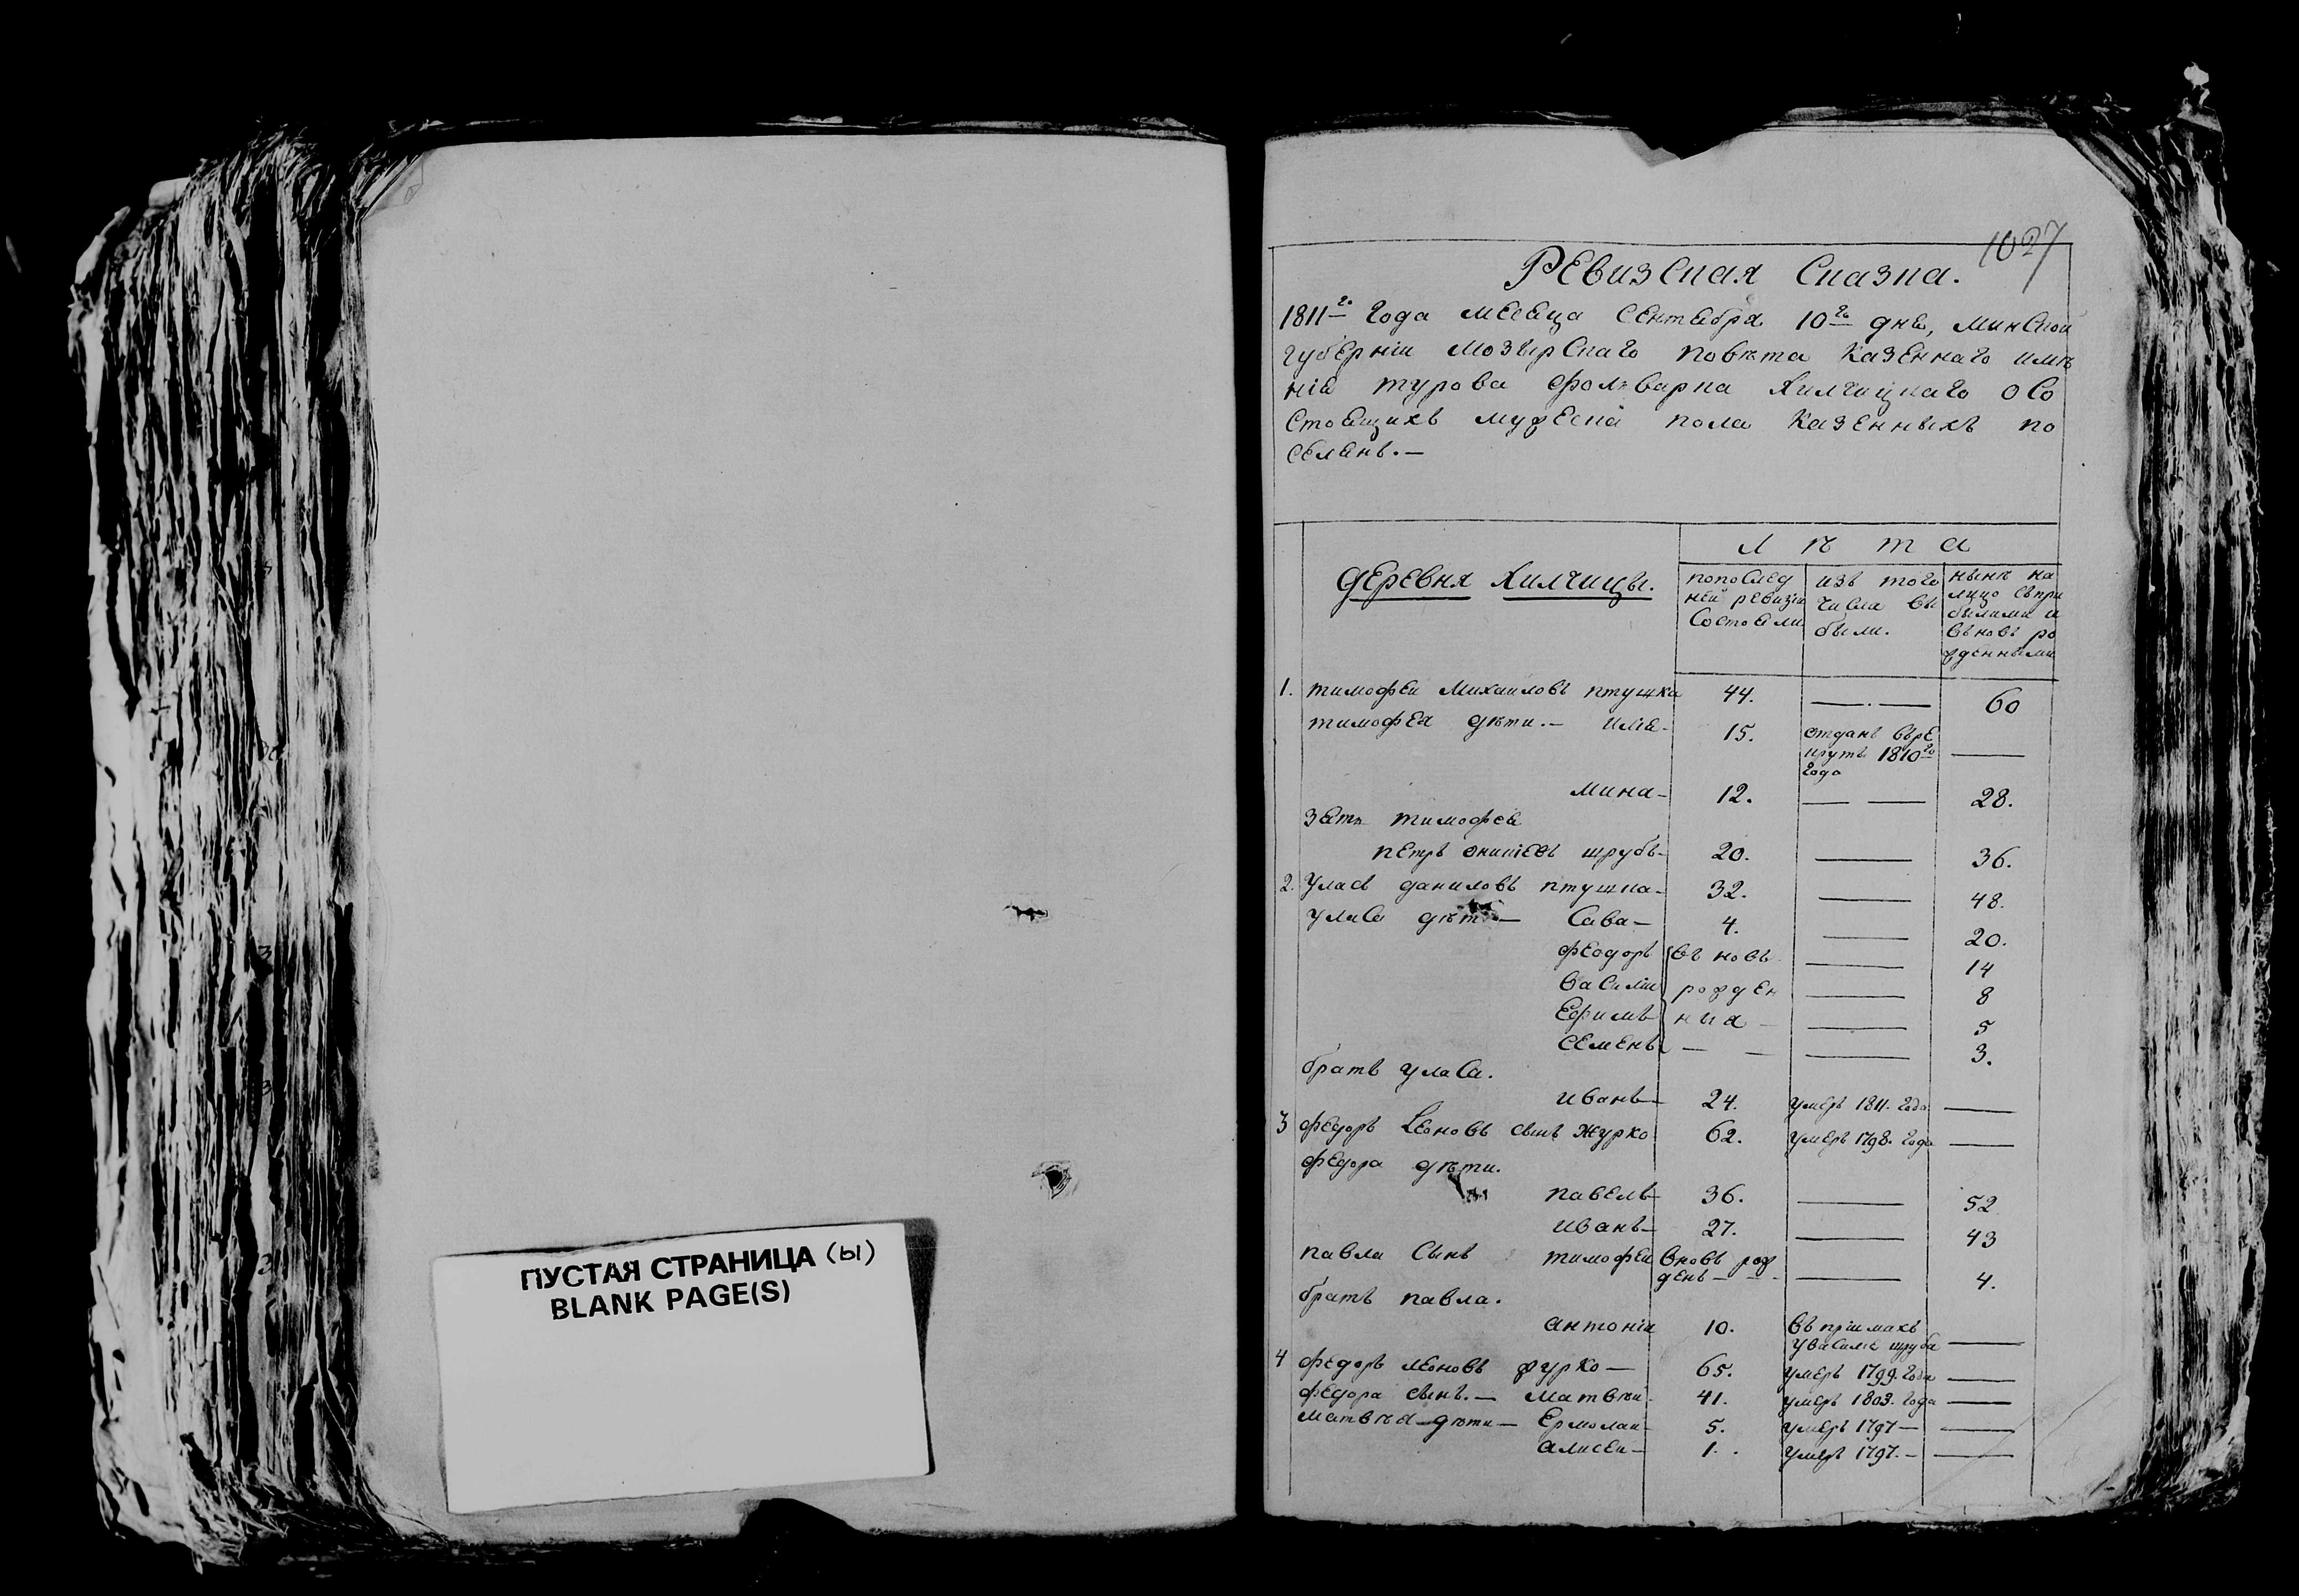 ПУСТАЯ СТРАНИЦА (Ы)
BLANK PAGE(S)
1027
Ревизская Сказка.
1811го Года месеца Сентебра 10го дне, минской
губерніи мозырскаго повѣта Казеннаго имѣ
ніе турова фолварка Хилчицкаго о со
стоещихъ мужеска пола Казенныхъ по
селенъ.—
Лѣта
деревня Хилчицы.
попослед
ней ревизіи
Состоели
изъ того
числа вы
были.
нынѣ на
лицо съпри
былыми и
въновь ро
жденными
1. тимофеи Михаиловъ птушка 44. — . — 60
тимофеа дѣти. — Иліе — 15. отданъ върекрутъ 1810го Года —
мина — 12. — — 28.
зеть тимофеа
петръ шрубъ — 20. — 36.
2. Уласъ даниловъ птушка — 32. — 48.
уласа дѣти — Сава — 4. — 20.
феодоръ въ новь — 14
Василіи рожден — 8
Ефимъ ныа — — 5
Семенъ — — — 3.
братъ уласа.
иванъ — 24. умеръ 1811. Года —
3 федоръ Леоновъ сынъ Журко 62. умеръ 1798. Года —
федора дѣти.
павелъ — 36. — 52
иванъ — 27. — 43
павла Сынъ тимофеи вновь рож
денъ — — — 4.
братъ павла.
антоніи 10. въ пріимахъ
у василе шруба —
4 федоръ леоновъ журко — 65. умеръ 1799. Года —
федора сынъ. — Матвѣи — 41. умеръ 1803. Года —
матвѣа дѣти — Ермолаи — 5. умеръ 1797 — —
алисеи — 1. умеръ 1797. — —